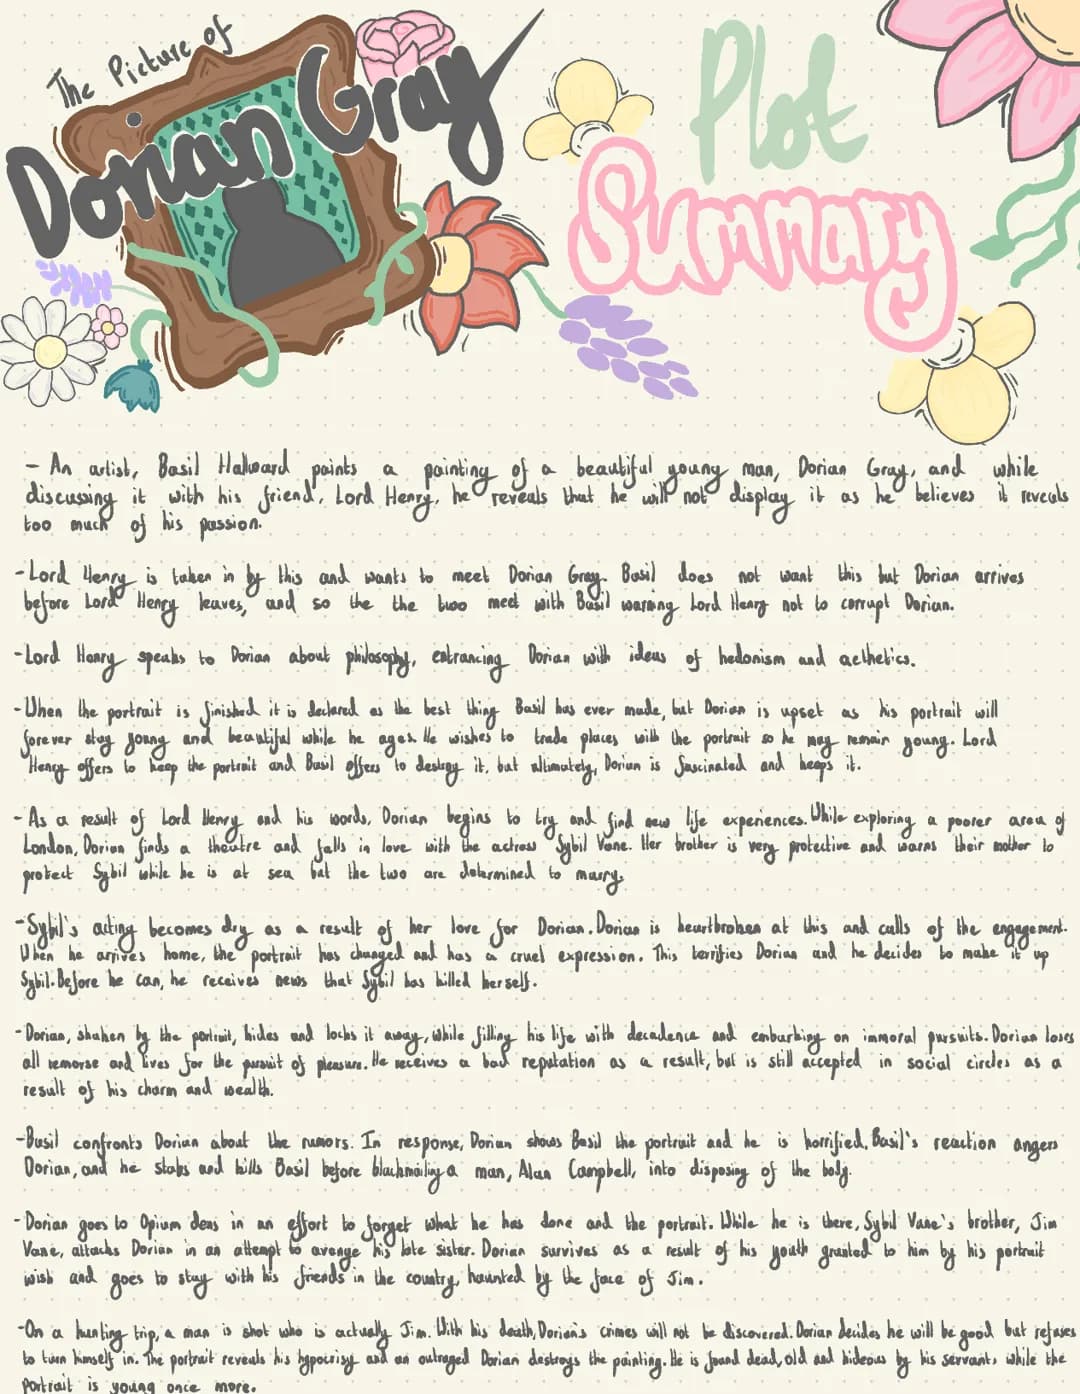 The Picture of
Dorian Gray
Plot
Summary
- An artist, Basil Hallward paints a painting of a beautiful young man, Dorian Gray, and while
discussing it with his friend, Lord Henry, he reveals that he will not display it as he believes it reveals
too much of his passion.
- Lord Henry is taken in by this and wants to meet Dorian Gray. Basil does not want this but Dorian arrives
before Lord Henry leaves, and so the the two meet with Basil warning Lord Henry not to corrupt Dorian.
- Lord Henry speaks to Dorian about philosophy, entrancing Dorian with ideas of hedonism and aethetics.
- When the portrait is finished it is declared as the best thing Basil has ever made, but Dorian is upset as his portrait will
forever stay young and beautiful while he ages. He wishes to trade places with the portrait so he may remain young. Lord
Henry offers to keep the portrait and Basil offers to destroy it, but ultimately, Dorian is fascinated and keeps it.
- As a result of Lord Henry and his words, Dorian begins to try and find new life experiences. While exploring a poorer area of
London, Dorian finds a theatre and falls in love with the actress Sybil Vane. Her brother is very protective and warns their mother to
protect Sybil while he is at sea but the two are determined to marry.
- Sybil's acting becomes dry as a result of her love for Dorian. Dorian is heartbroken at this and calls of the engagement.
When he arrives home, the portrait has changed and has a cruel expression. This terrifies Dorian and he decides to make it up
Sybil. Before he can, he receives news that Sybil has killed herself.
- Dorian, shaken by the portrait, hides and locks it away, while filling his life with decadence and embarking on immoral pursuits. Dorian loses
all remorse and lives for the pursuit of pleasure. He receives a bad reputation as a result, but is still accepted in social circles as a
result of his charm and wealth.
- Basil confronts Dorian about the rumors. In response, Dorian shows Basil the portrait and he is horrified. Basil's reaction angers
Dorian, and he stabs and kills Basil before blackmailing a man, Alan Campbell, into disposing of the body.
- Dorian goes to Opium dens in an effort to forget what he has done and the portrait. While he is there, Sybil Vane's brother, Jim
Vane, attacks Dorian in an attempt to avenge his late sister. Dorian survives as a result of his youth granted to him by his portrait
wish and goes to stay with his friends in the country, haunted by the face of Jim.
- On a hunting trip, a man is shot who is actually Jim. With his death, Dorian's crimes will not be discovered. Dorian decides he will be good but refuses
to turn himself in. The portrait reveals his hypocrisy and an outraged Dorian destroys the painting. He is found dead, old and hideous by his servants while the
portrait is young once more.